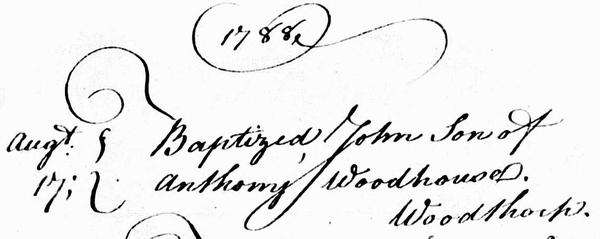 1788,
Augt. Baptized, John Son of
17; Anthony Woodhouse.
Woodthorp.